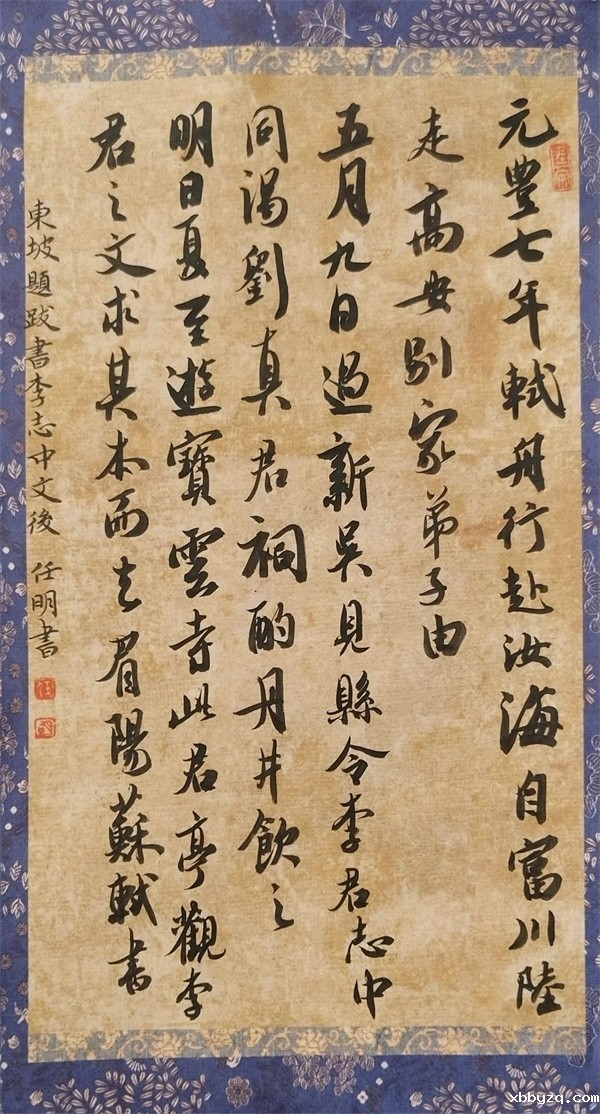 元豐七年軾舟行赴汝海自富川陸
走高安別家弟子由
五月九日過新吳見縣令李君志中
同謁劉真君祠酌丹井飲之
明日夏至遊寶雲寺此君亭觀李
君之文求其本而去眉陽蘇軾書
東坡題跋書李志中文後 任明書
xbbyzq.com